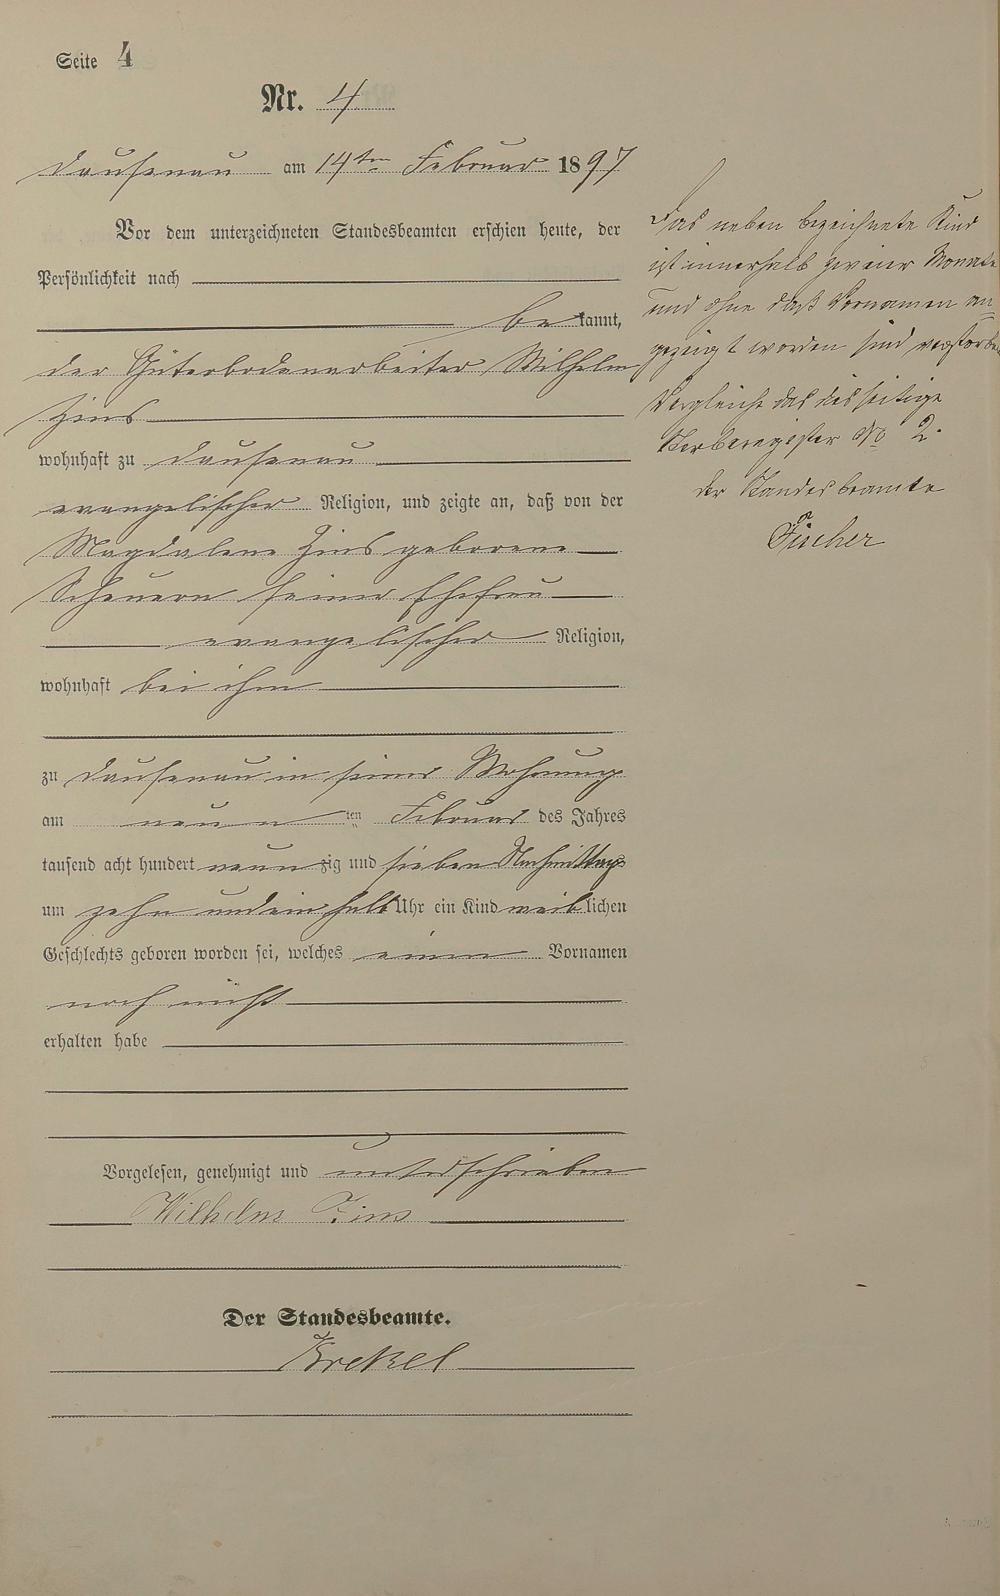 Seite 4
Nr. 4
Dausenau am 14ten Februar 1897
Vor dem unterzeichneten Standesbeamten erschien heute, der
Persönlichkeit nach
bekannt,
der Güterbodenarbeiter Wilhelm
Zins
wohnhaft zu Dausenau
evangelischer Religion, und zeigte an, daß von der
Magdalene Zins geborene
Scheuern seiner Ehefrau
evangelischer Religion,
wohnhaft bei ihm
zu Dausenau in seiner Wohnung
am neunten Februar des Jahres
tausend acht hundert neunzig und sieben Nachmittags
um zehn undein halb Uhr ein Kind weiblichen
Geschlechts geboren worden sei, welches einen Vornamen
noch nicht
erhalten habe
Vorgelesen, genehmigt und unterschrieben
Wilhelm Zins
Der Standesbeamte.
Krekel
Das neben bezeichnete Kind
ist innerhalb zweier Monate
und ohne daß Vornamen an=
gezeigt worden sind verstorben
Vergleiche das diesseitige
Sterberegister No 2.
der Standesbeamte
Fischer